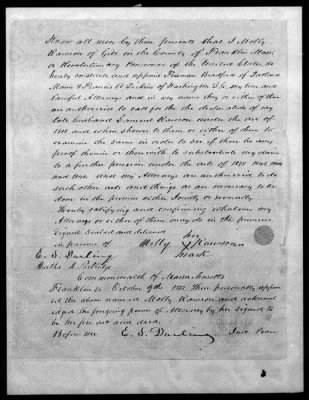 Know all men by these presents that I Molly
Rawson of Gill in the County of Franklin Mass
a Revolutionary Pensioner of the United States do
hereby constitute and appoint Freeman Bradford of
Maine & Francis A Dickins of Washington D.C. my true and
lawful Attorneys and in my name they or either of them
are authorized to call for the the declaration of my
late husband Samuel Rawson under the act of
1818 and when shown to them or either of them to
examine the same in order to see if there be any
proof therein or therewith to substantiate my claim
to a further pension under the act of 1838 1843 1844
and 1848 and my Attorneys are authorized to do
such other acts and things as are necessary to be
done in the premises either jointly or severally
Hereby ratifying and confirming whatever my
Attorneys or either of them may do in the premises
Signed Sealed and delivered her
in presence of Molly X Rawson
E. S. Darling mark
Martha
Commonwealth of Massachusetts
Franklin Ss. October 9th 1851. Then personally appear
ed the above named Molly Rawson and acknowl
edged the foregoing power of Attorney by her signed to
be her free act and deed.
Before me E. S. Darling Just Peace